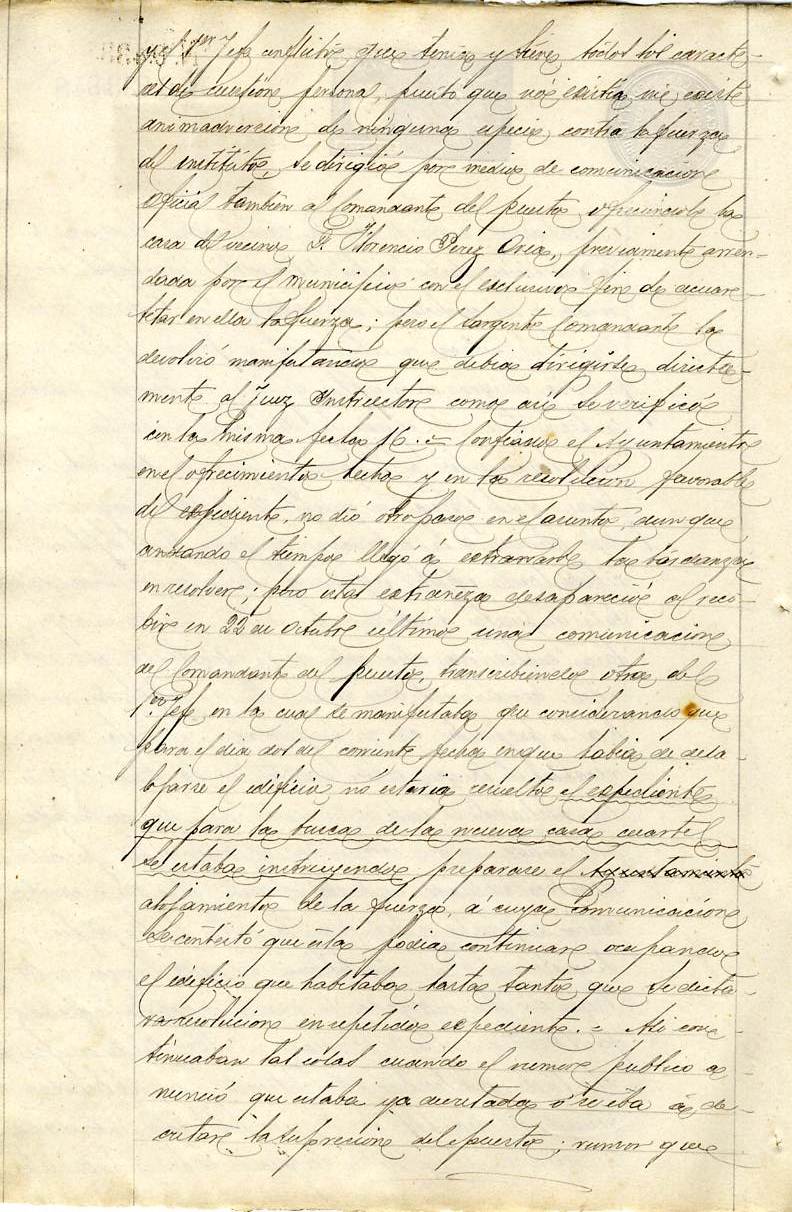 y el 1er Jefe conflicto que tenia y tiene todos los caracte-
res de cuestion personal, puesto que nó existia nie existe
animadversion de ninguna especie contra la fuerza
del instituto, se dirigió por medio de comunicacion
oficial tambien al Comandante del puesto ofreciendole la
casa del vecino D. Florencio Perez Oria, previamente arren-
dada por el municipio con el esclusivo fin de acuar-
telar en ella la fuerza; pero el Sargento Comandante la
devolvió manifestando que debia dirigirse directa-
mente al Juez Instructor como asi se verificó
con la misma fecha 16.= Confiando el Ayuntamiento
en el ofrecimiento hecho y en la resolucion favorable
del espediente, no dió otro paso en el asunto, aun que
andando el tiempo llegó á estrañarle la tardanza
en resolver; pero esta estrañeza desapareció al reci-
bir en 22 de Octubre último una comunicacion
del Comandante del puesto, transcribiendo otra del
1er Jefe en la cual se manifestaba que considerando que
para el dia dos del corriente fecha en que habia de desa-
lojarse el edificio nó estaria resuelto el espediente
que para la busca de la nueva casa cuartel
se estaba instruyendo preparase el Ayuntamiento
alojamiento de la fuerza, á cuya comunicacion
se contestó que esta podia continuar ocupando
el edificio que habitaba hasta tanto que se dicta-
ra resolucion en repetido espediente.= Asi con-
tinuaban tal cosas cuando el rumor publico a-
nunció que estaba ya decretada ó se iba á de-
cretar la supresion del puesto; rumor que